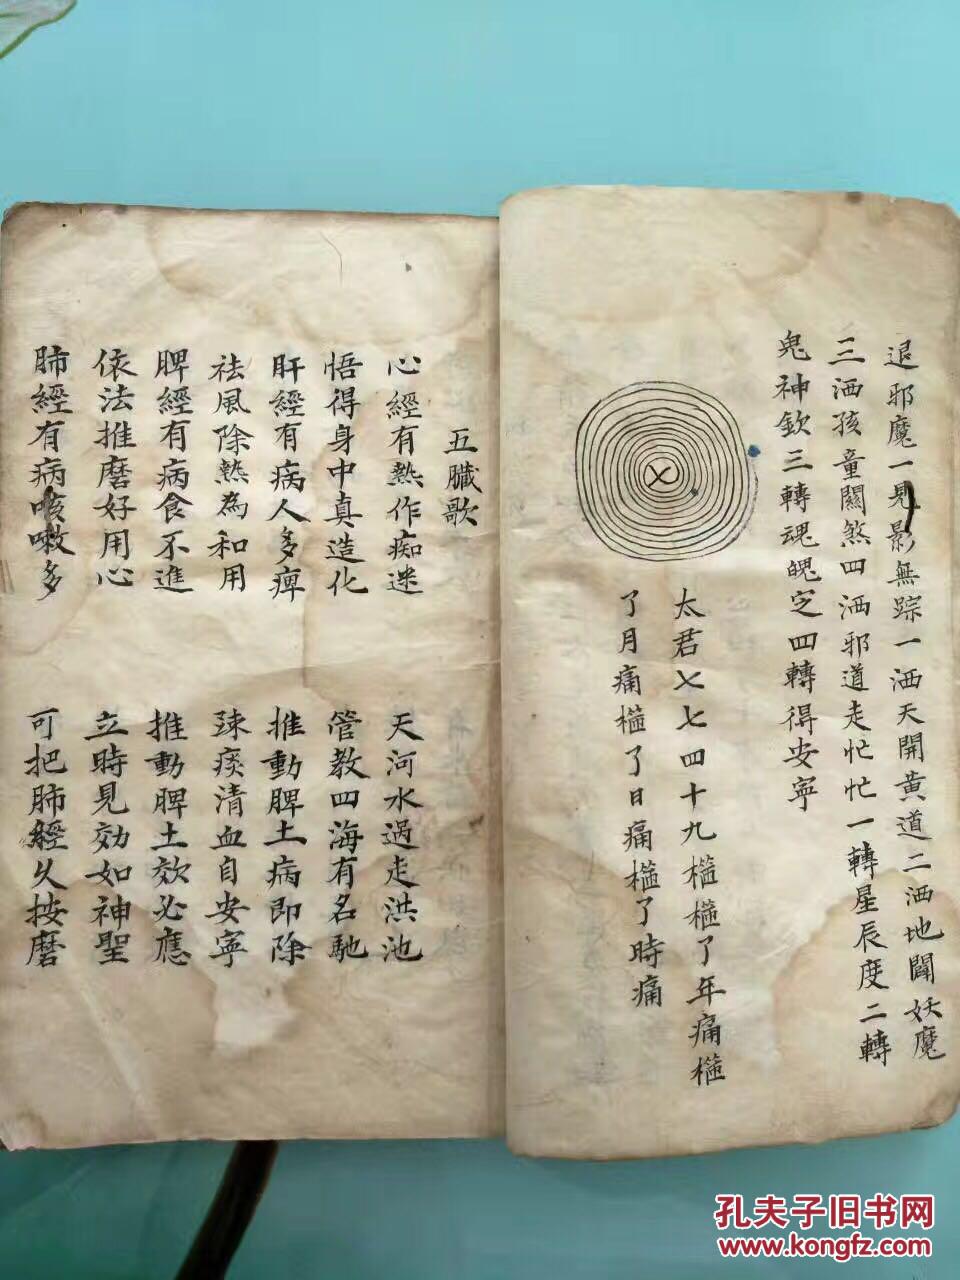 退邪魔一見影無踪一洒天開黃道二洒地闢妖魔
三洒孩童關煞四洒邪道走忙忙一轉星辰度二轉
鬼神欽三轉魂魄定四轉得安寧
太君乂七四十九槌槌了年痛槌
了月痛槌了日痛槌了時痛
五臟歌
心經有熱作痴迷 天河水過走洪池
悟得身中真造化 管教四海有名馳
肝經有病人多痺 推動脾土病即除
祛風除熱為和用 踈痰清血自安寧
脾經有病食不進 推動脾土效必應
依法推磨好用心 立時見効如神聖
肺經有病咳嗽多 可把肺經久按磨
孔夫子旧书网
www.kongfz.com